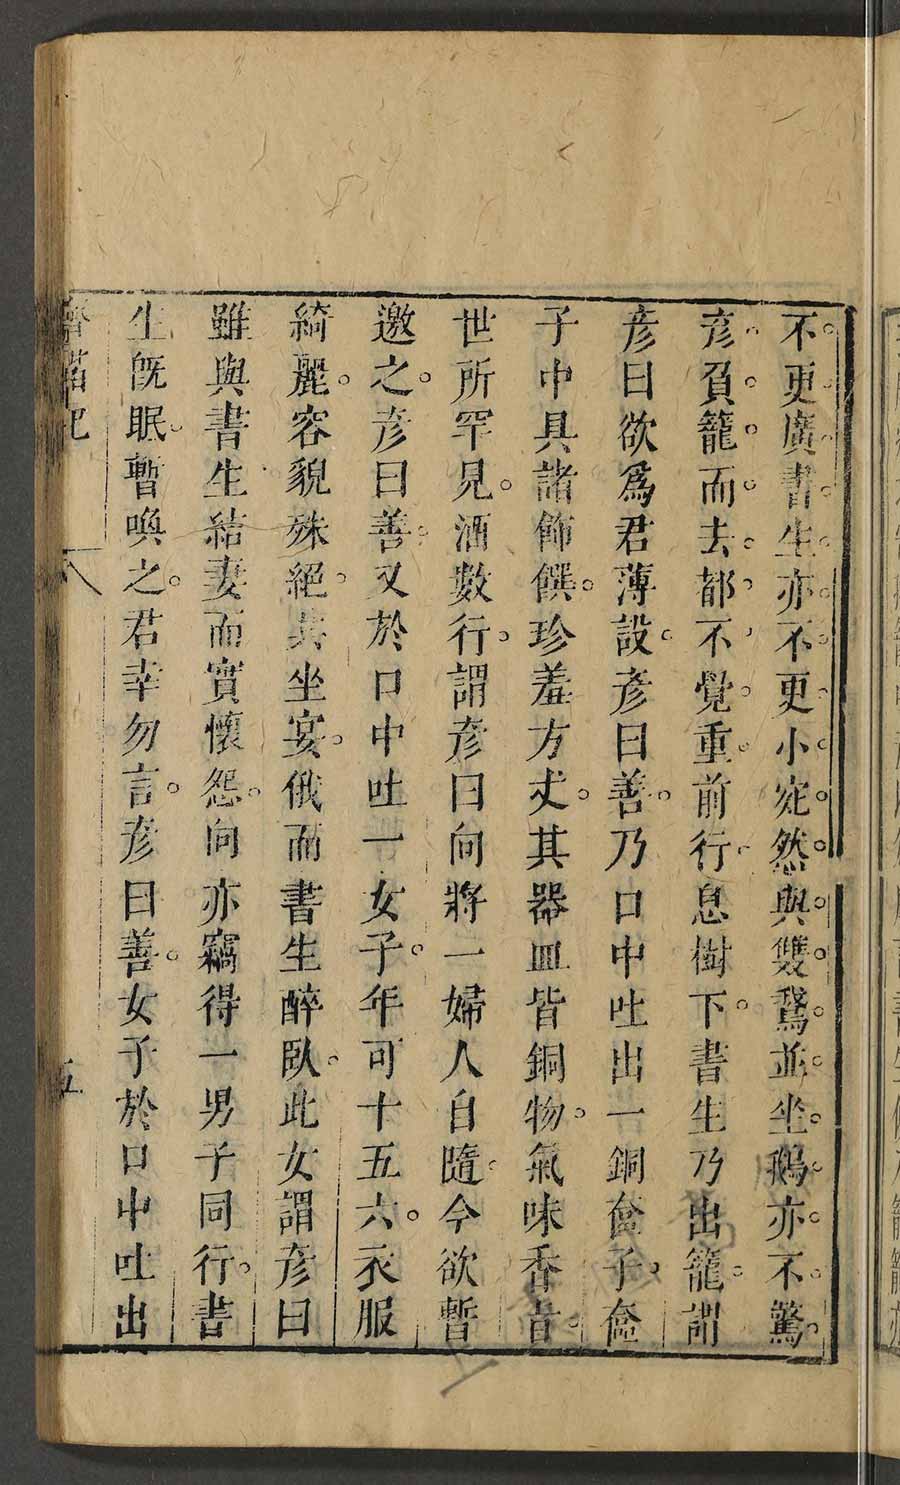 不更廣書生亦不更小宛然與雙鵞並坐鵝亦不驚
彦負籠而去都不覺重前行息樹下書生乃出籠謂
彦曰欲爲君薄設彦曰善乃口中吐出一銅奩子奩
子中具諸飾饌珍羞方丈其器皿皆銅物氣味香旨
世所罕見酒數行謂彦曰向將一婦人自隨今欲暫
邀之彦曰善又於口中吐一女子年可十五六衣服
綺麗容貌殊絕共坐宴俄而書生醉臥此女謂彦曰
雖與書生結妻而實懷怨向亦竊得一男子同行書
生既眠暫喚之君幸勿言彦曰善女子於口中吐出
齊諧記 五